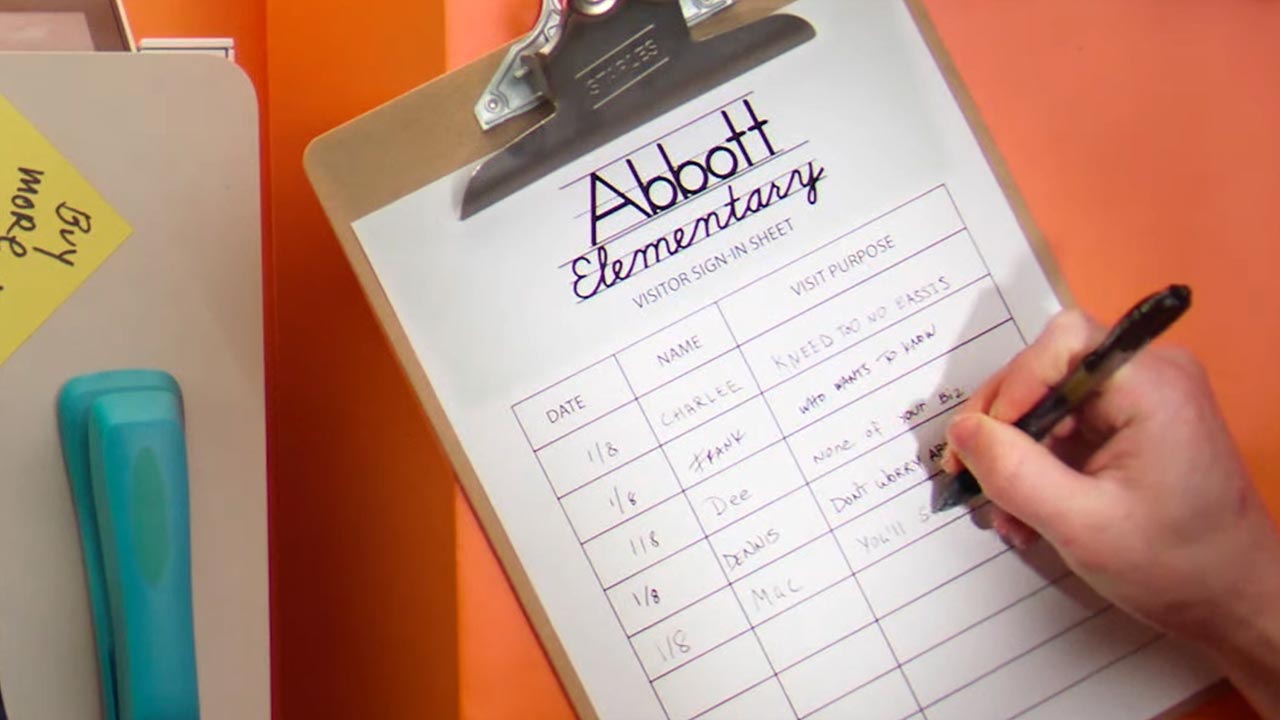 STAPLES
Abbott
Elementary
VISITOR SIGN-IN SHEET
DATE NAME VISIT PURPOSE
1/8 CHARLEE KNEED TOO NO BASSIS
1/8 FRANK WHO WANTS TO KNOW
1/8 Dee None of your Biz
1/8 DENNIS DON'T WORRY
1/8 Mac YOU'll
BUY
MORE